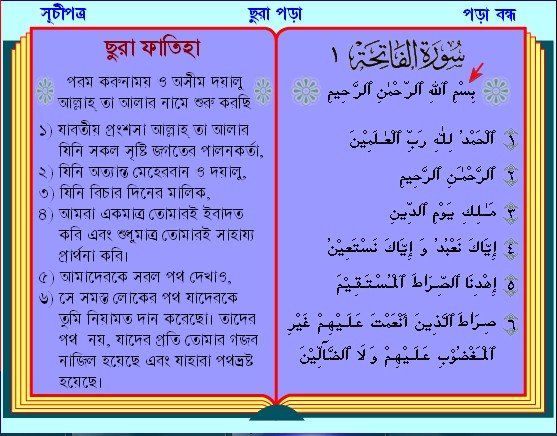 সূচীপত্র
ছুরা পড়া
পড়া বন্ধ
ছুরা ফাতিহা
পরম করুনাময় ও অসীম দয়ালু
আল্লাহ তা আলার নামে শুরু করছি
১) যাবতীয় প্রংশসা আল্লাহ তা আলার
যিনি সকল সৃষ্টি জগতের পালনকর্তা,
২) যিনি অত্যান্ত মেহেরবান ও দয়ালু,
৩) যিনি বিচার দিনের মালিক,
৪) আমরা একমাত্র তোমারই ইবাদত
করি এবং শুধুমাত্র তোমারই সাহায্য
প্রার্থনা করি।
৫) আমাদেরকে সরল পথ দেখাও,
৬) সে সমস্ত লোকের পথ যাদেরকে
তুমি নিয়ামত দান করেছো। তাদের
পথ নয়, যাদের প্রতি তোমার গজব
নাজিল হয়েছে এবং যাহারা পথভ্রষ্ট
হয়েছে।
سُورَةُ الْفَاتِحَةِ ١
بِسْمِ ٱللَّهِ ٱلرَّحْمَٰنِ ٱلرَّحِيمِ
١ ٱلْحَمْدُ لِلَّهِ رَبِّ ٱلْعَٰلَمِيْنَ
٢ ٱلرَّحْمَٰنِ ٱلرَّحِيمِ
٣ مَٰلِكِ يَوْمِ ٱلدِّينِ
٤ إِيَّاكَ نَعْبُدُ وَ إِيَّاكَ نَسْتَعِيْنُ
٥ إِهْدِنَا ٱلصِّرَاطَ ٱلْمُسْتَقِيْمَ
٦ صِرَاطَ ٱلَّذِينَ أَنْعَمْتَ عَلَيْهِمْ غَيْرِ
ٱلْمَغْضُوْبِ عَلَيْهِمْ وَلَا ٱلضَّآلِّيْنَ